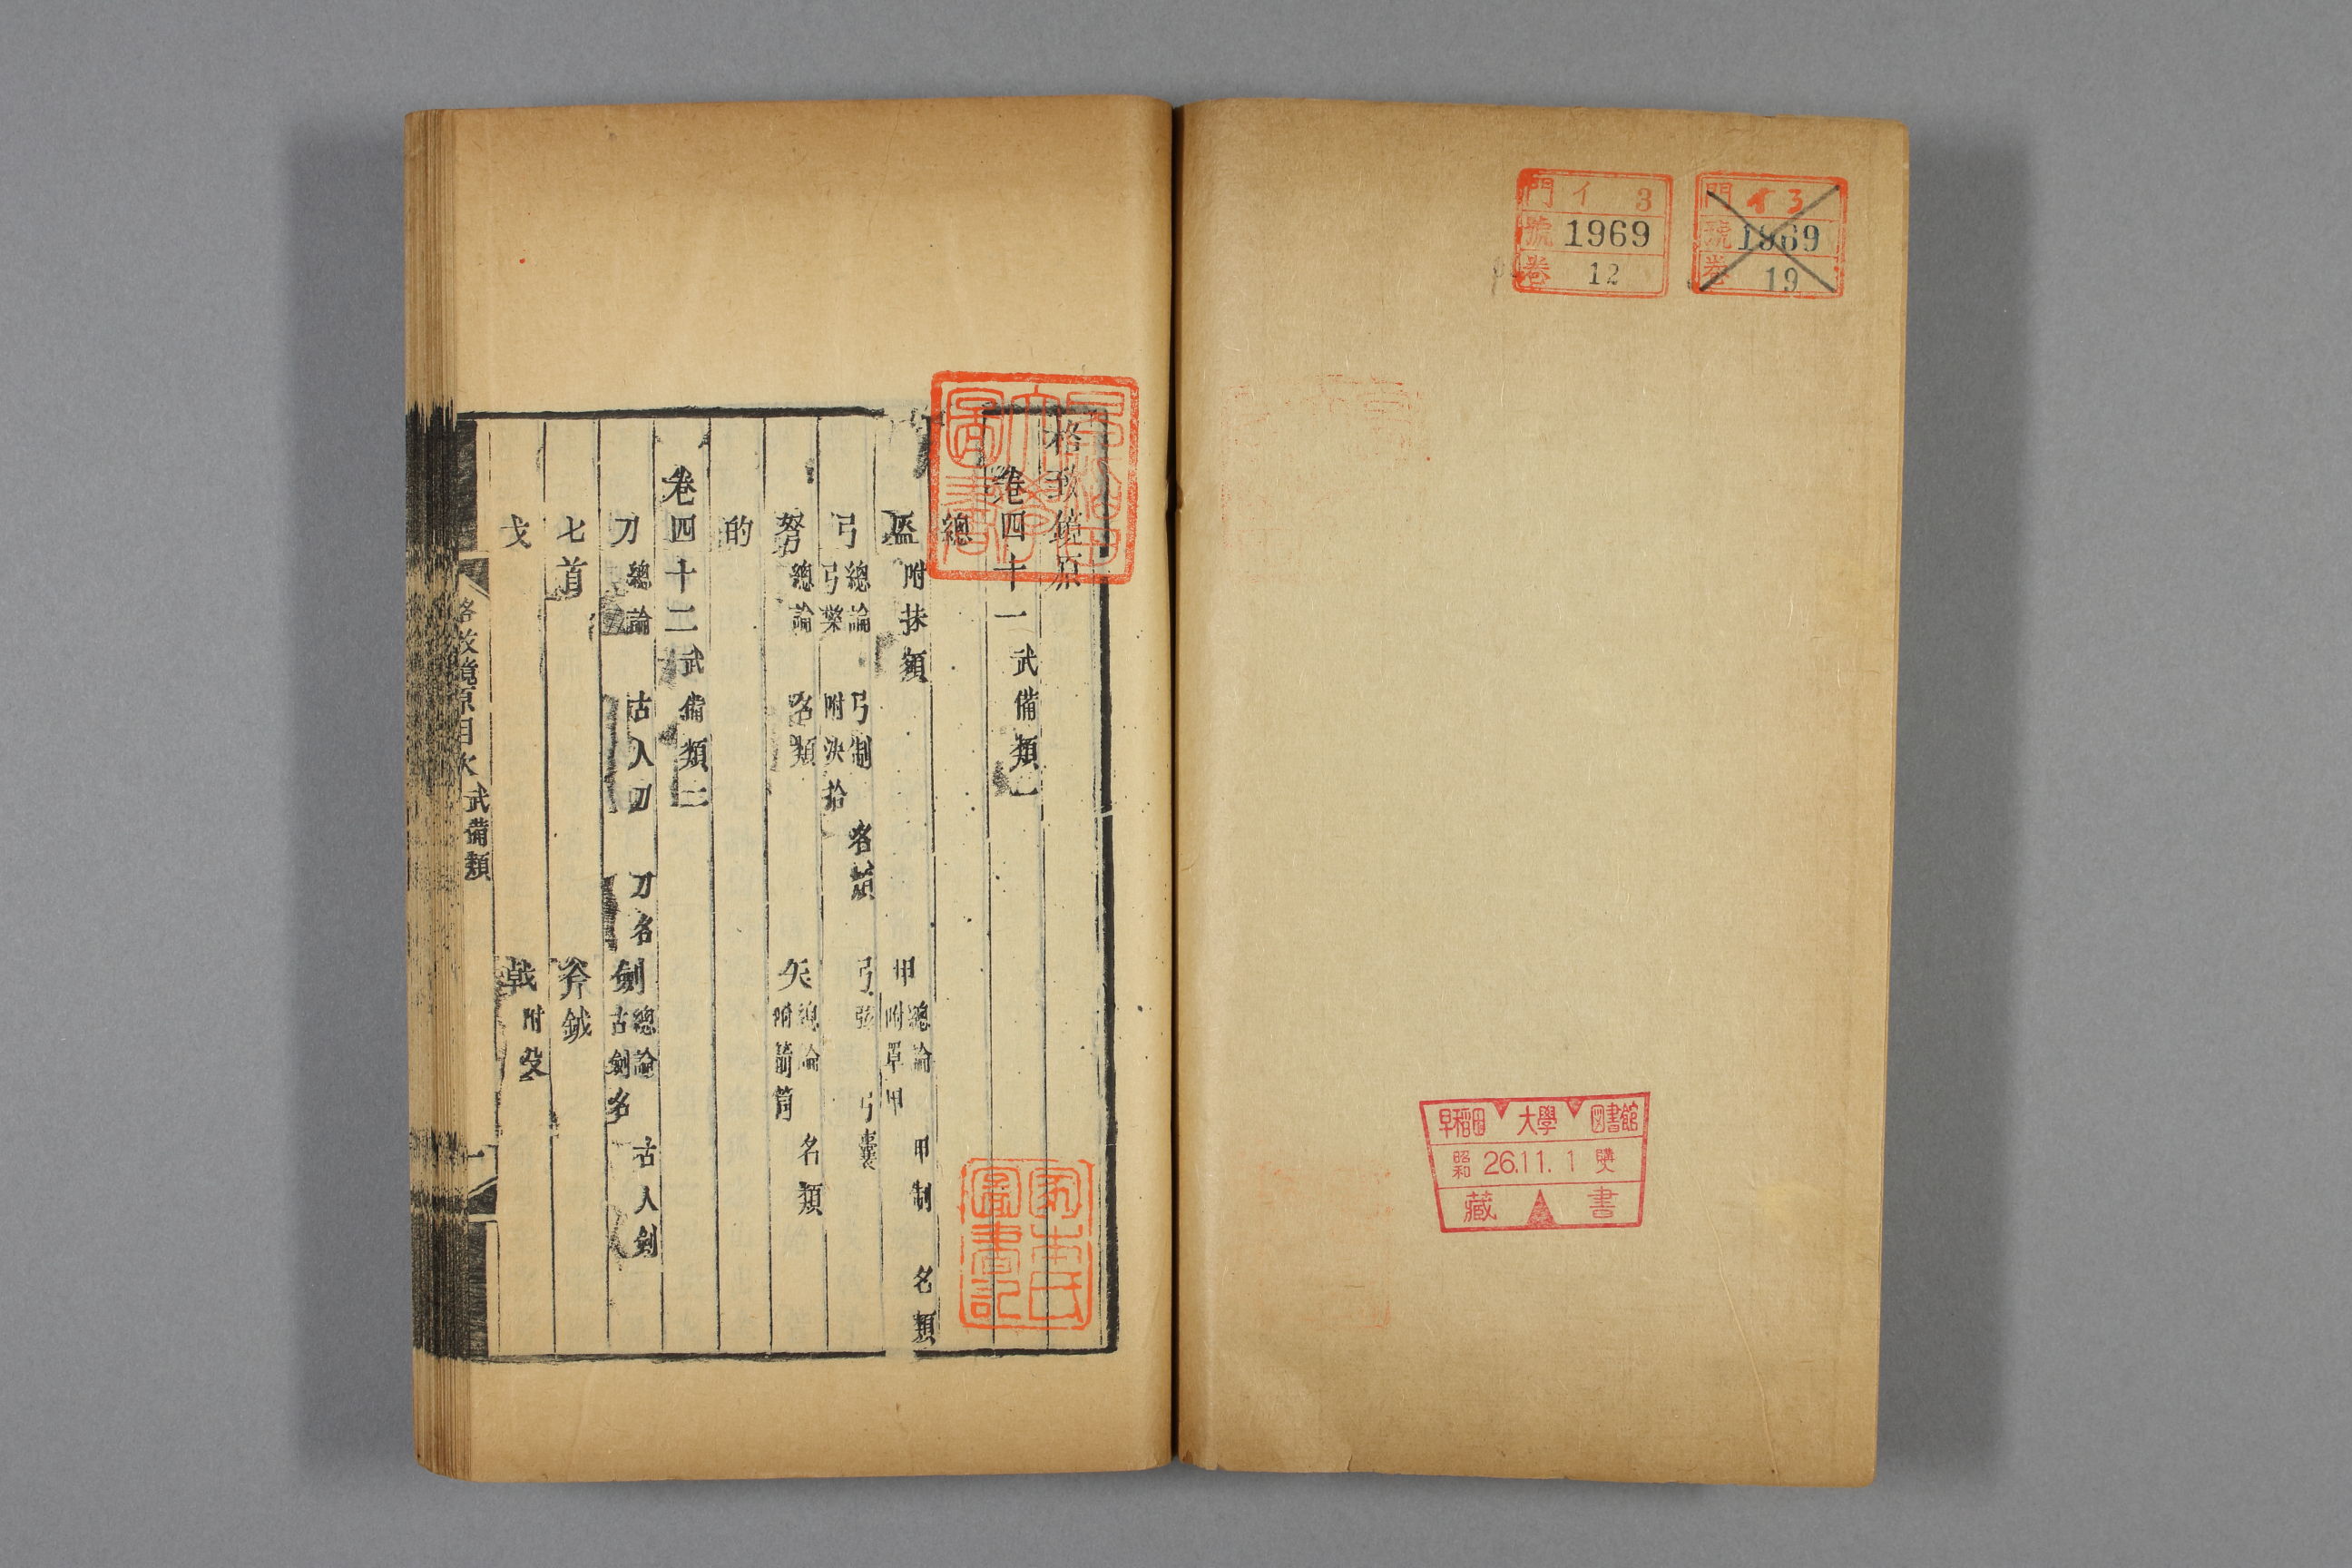 門 イ 3
號 1969
卷 12
門 イ 3
號 1969
卷 19
早稲田 大學 図書館
昭和 26.11.1 購
藏 書
早稲田
大學
圖書
格致鏡原
卷四十一 武備類一
總
盔 附抹額 甲 總論 附罩甲 甲制 名類
弓 總論 弓檠 弓制 附決拾 名類 弓弦 弓囊
弩 總論 名類 矢 總論 附箭筒 名類
的
卷四十二 武備類二
刀 總論 古人刀 刀名 劍 總論 古劍名 古人劍
匕首 斧鉞
戈 戟 附殳
格致鏡原目次 武備類 一
圖書記